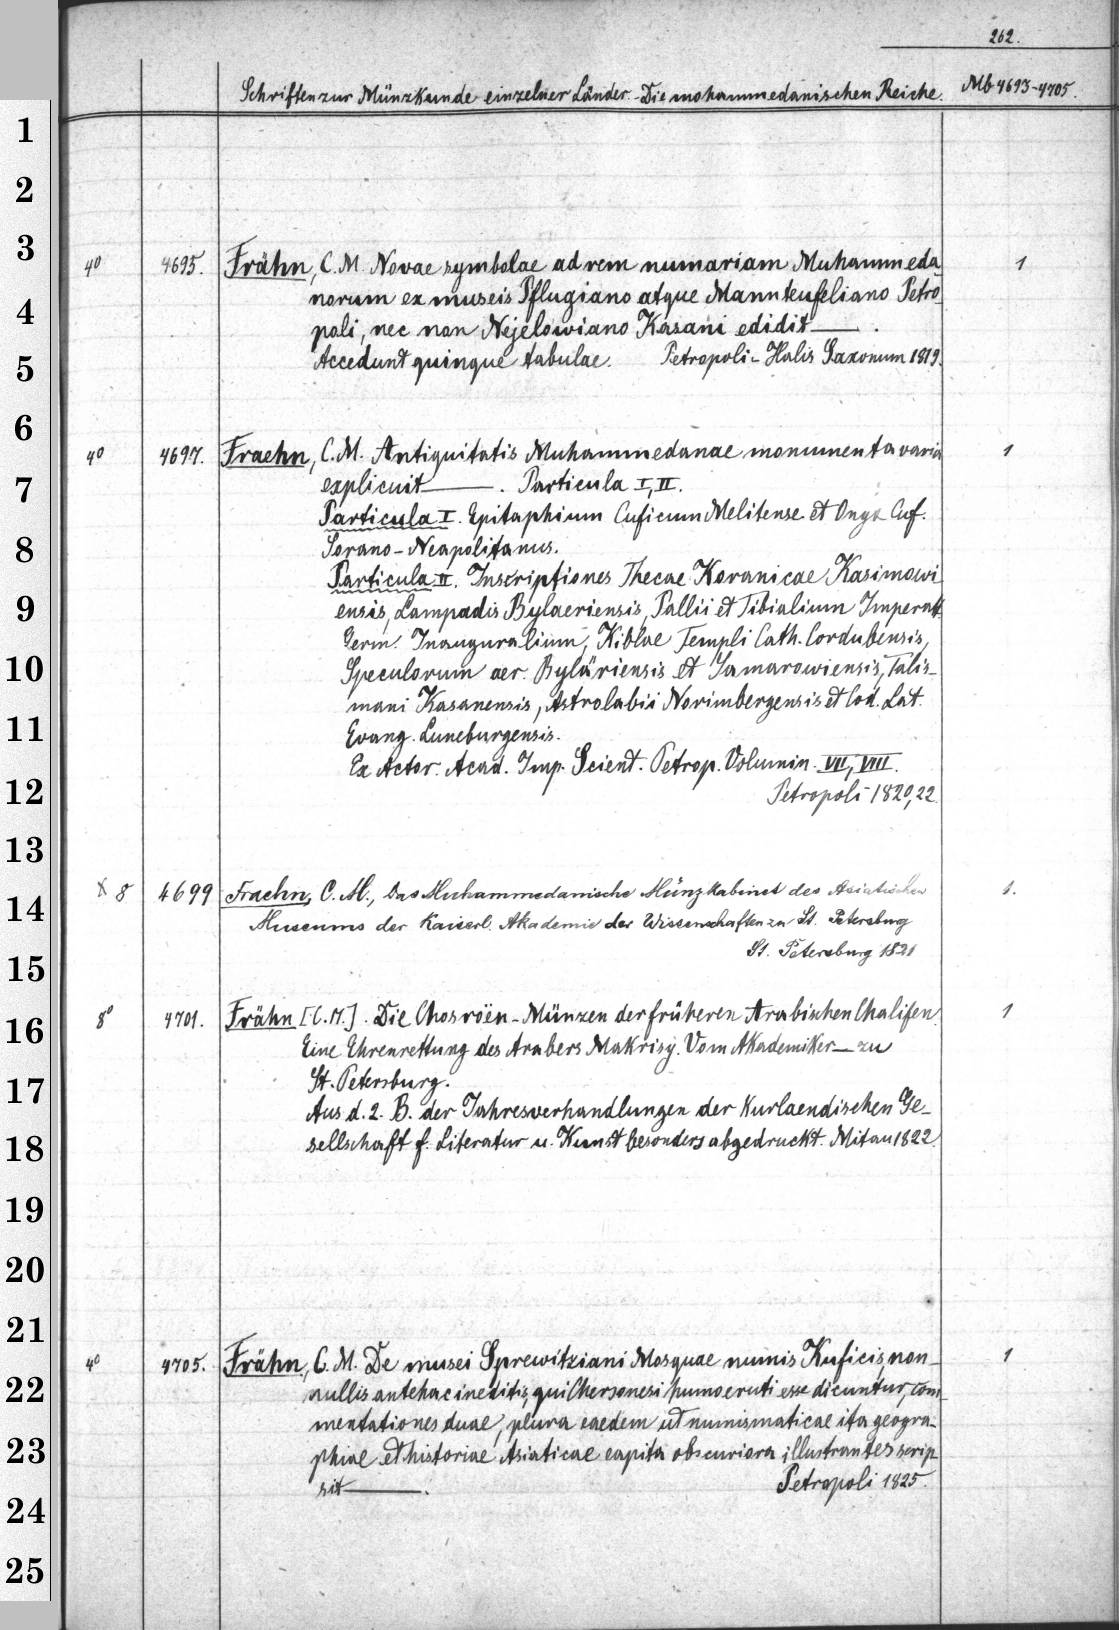 262.
Schriften zur Münzkunde einzelner Länder. Die mohammedanischen Reiche. Mb 4693-4705.
1
2
3
4
5
6
7
8
9
10
11
12
13
14
15
16
17
18
19
20
21
22
23
24
25
4° 4695. Frähn, C. M. Novae symbolae ad rem numariam Muhammeda 1
norum ex museis Pflugiano atque Mannteufeliano Petro
poli, nec non Nejelowiano Kasani edidit —— .
Accedunt quinque tabulae. Petropoli - Halis Saxonum 1819.
4° 4697. Fraehn, C. M. Antiquitatis Muhammedanae monumenta varia 1
explicuit —— . Particula I, II.
Particula I. Epitaphium Cuficum Melitense et Onyx Cuf.
Sorano-Neapolitanus.
Particula II. Inscriptiones Thecae Koranicae Kasimowi
ensis, Lampadis Bylaeriensis, Pallii et Tibialium Imperatt.
Germ. Inauguralium, Kiblae Templi Cath. Cordubensis,
Speculorum aer. Byläriensis et Samarowiensis, Talis-
mani Kasanensis, Astrolabii Norimbergensis et Cod. Lat.
Evang. Luneburgensis.
Ex Actor. Acad. Imp. Scient. Petrop. Volumin. VII, VIII.
Petropoli 1820,22.
X 8 4699 Fraehn, C. M., Das Muhammedanische Münzkabinet des Asiatischen 1.
Museums der Kaiserl. Akademie der Wissenschaften zu St. Petersburg
St. Petersburg 1821
8° 4701. Frähn [C. M.]. Die Chosroën-Münzen der früheren Arabischen Chalifen. 1
Eine Ehrenrettung des Arabers Makrisy. Vom Akademiker — zu
St. Petersburg.
Aus d. 2. B. der Jahresverhandlungen der Kurlaendischen Ge-
sellschaft f. Literatur u. Kunst besonders abgedruckt. Mitau 1822.
4° 4705. Frähn, C. M. De musei Sprewitziani Mosquae numis Kuficis non- 1
nullis antehac ineditis, qui Chersonesi humo eruti esse dicuntur, com
mentationes duae, plura eaedem ut numismaticae ita geogra-
phiae et historiae Asiaticae capita obscuriora illustrantes scrip
sit —— . Petropoli 1825.